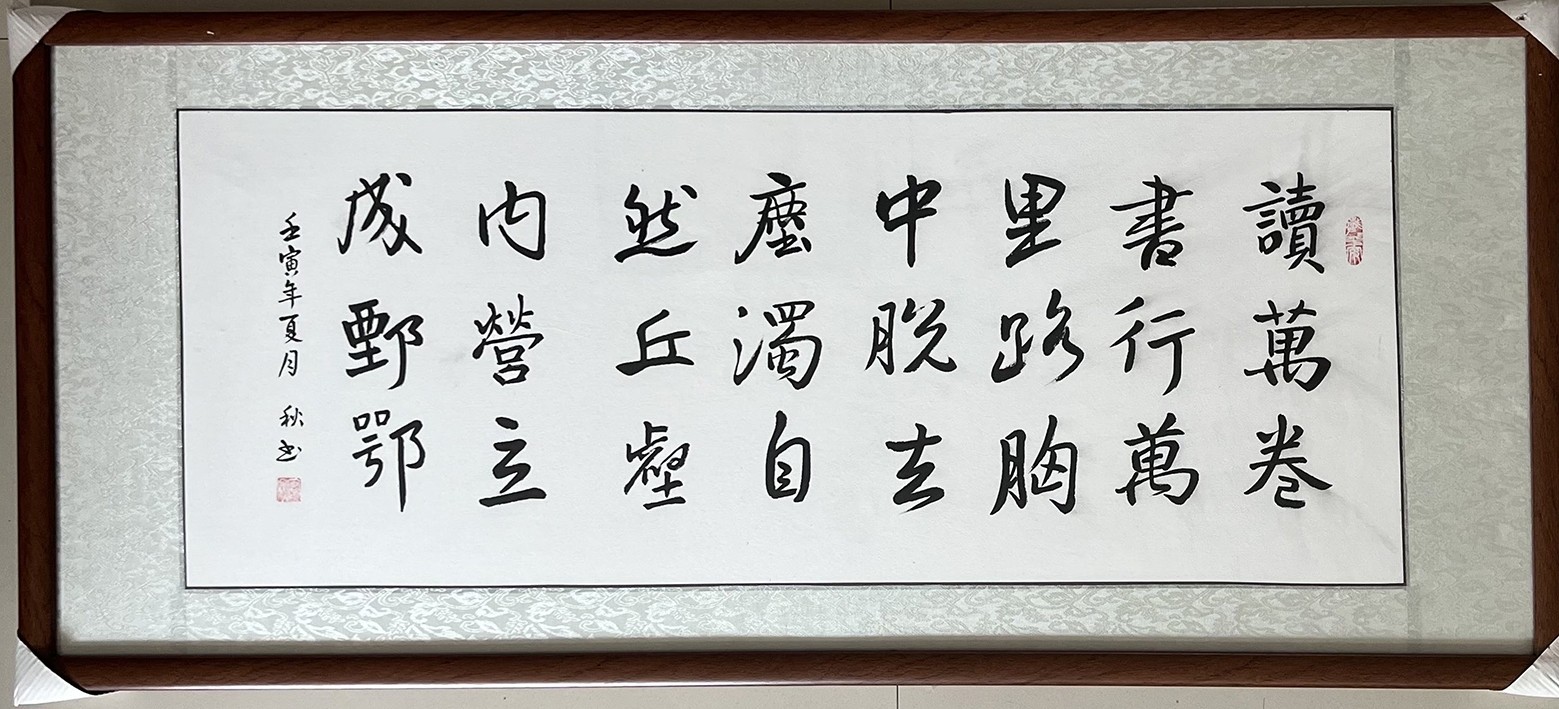 讀萬卷
書行萬
里路胸
中脱去
塵濁自
然丘壑
内營立
成鄄鄂
壬寅年夏月 秋书